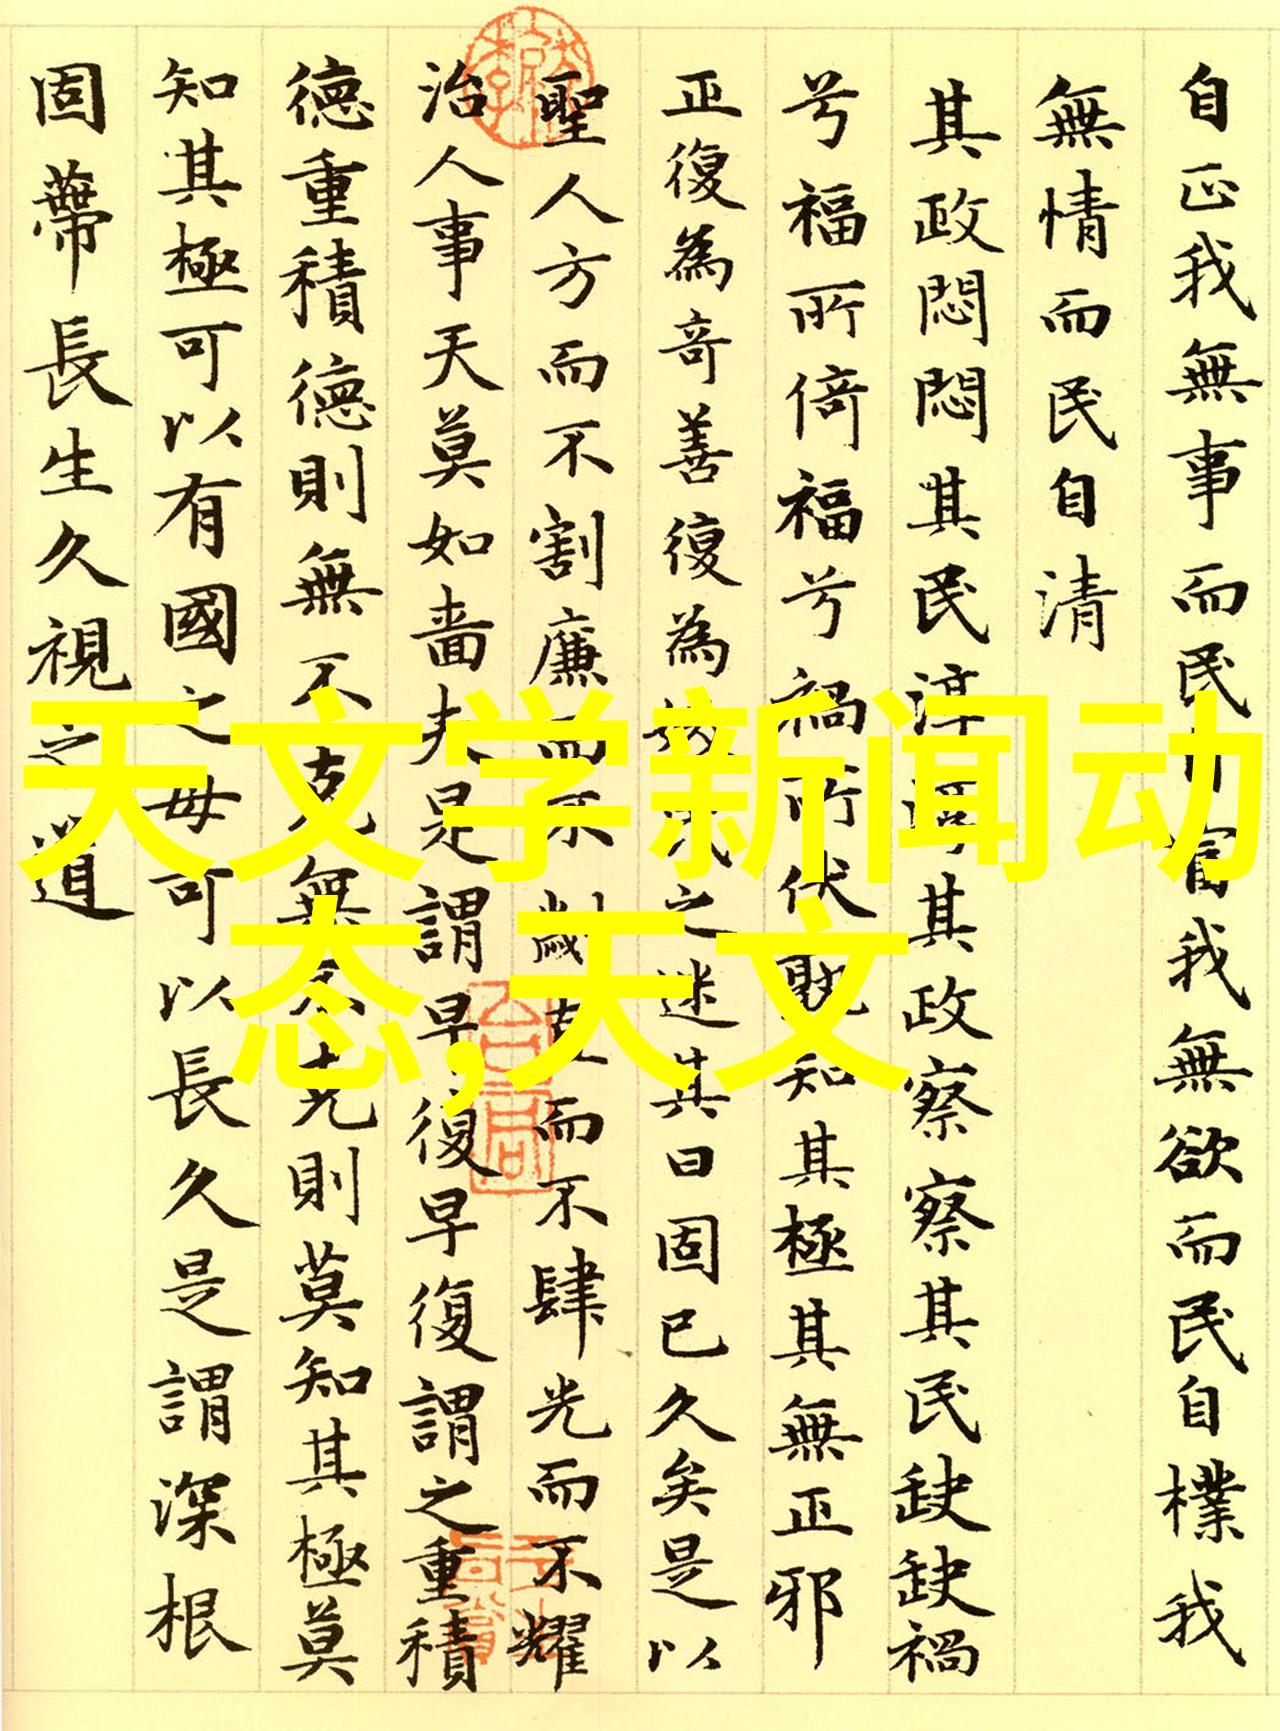 自正我無事而民自富我無欲而民自樸我
無情而民自清
其政悶悶其民淳淳其政察察其民缺缺禍
兮福所倚福兮禍所伏孰知其極其無正邪
正復為奇善復為訞民之迷其日固已久矣是以
聖人方而不割廉而不劌直而不肆光而不耀
治人事天莫如嗇夫是謂早復早復謂之重積
德重積德則無不克無不克則莫知其極莫
知其極可以有國之母可以長久是謂深根
固蔕長生久視之道
天文学新闻动
态,天文